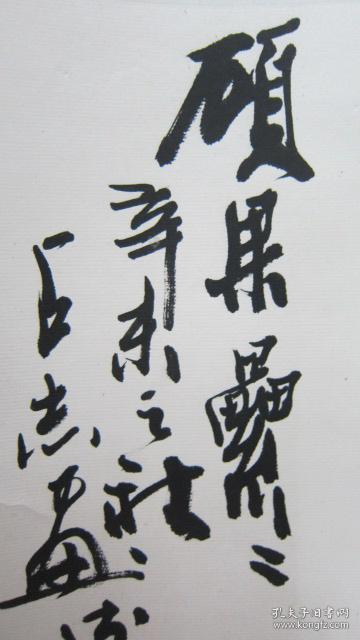 硕果纍〻
辛未之秋
石志画
孔夫子旧书网
www.kongfz.com